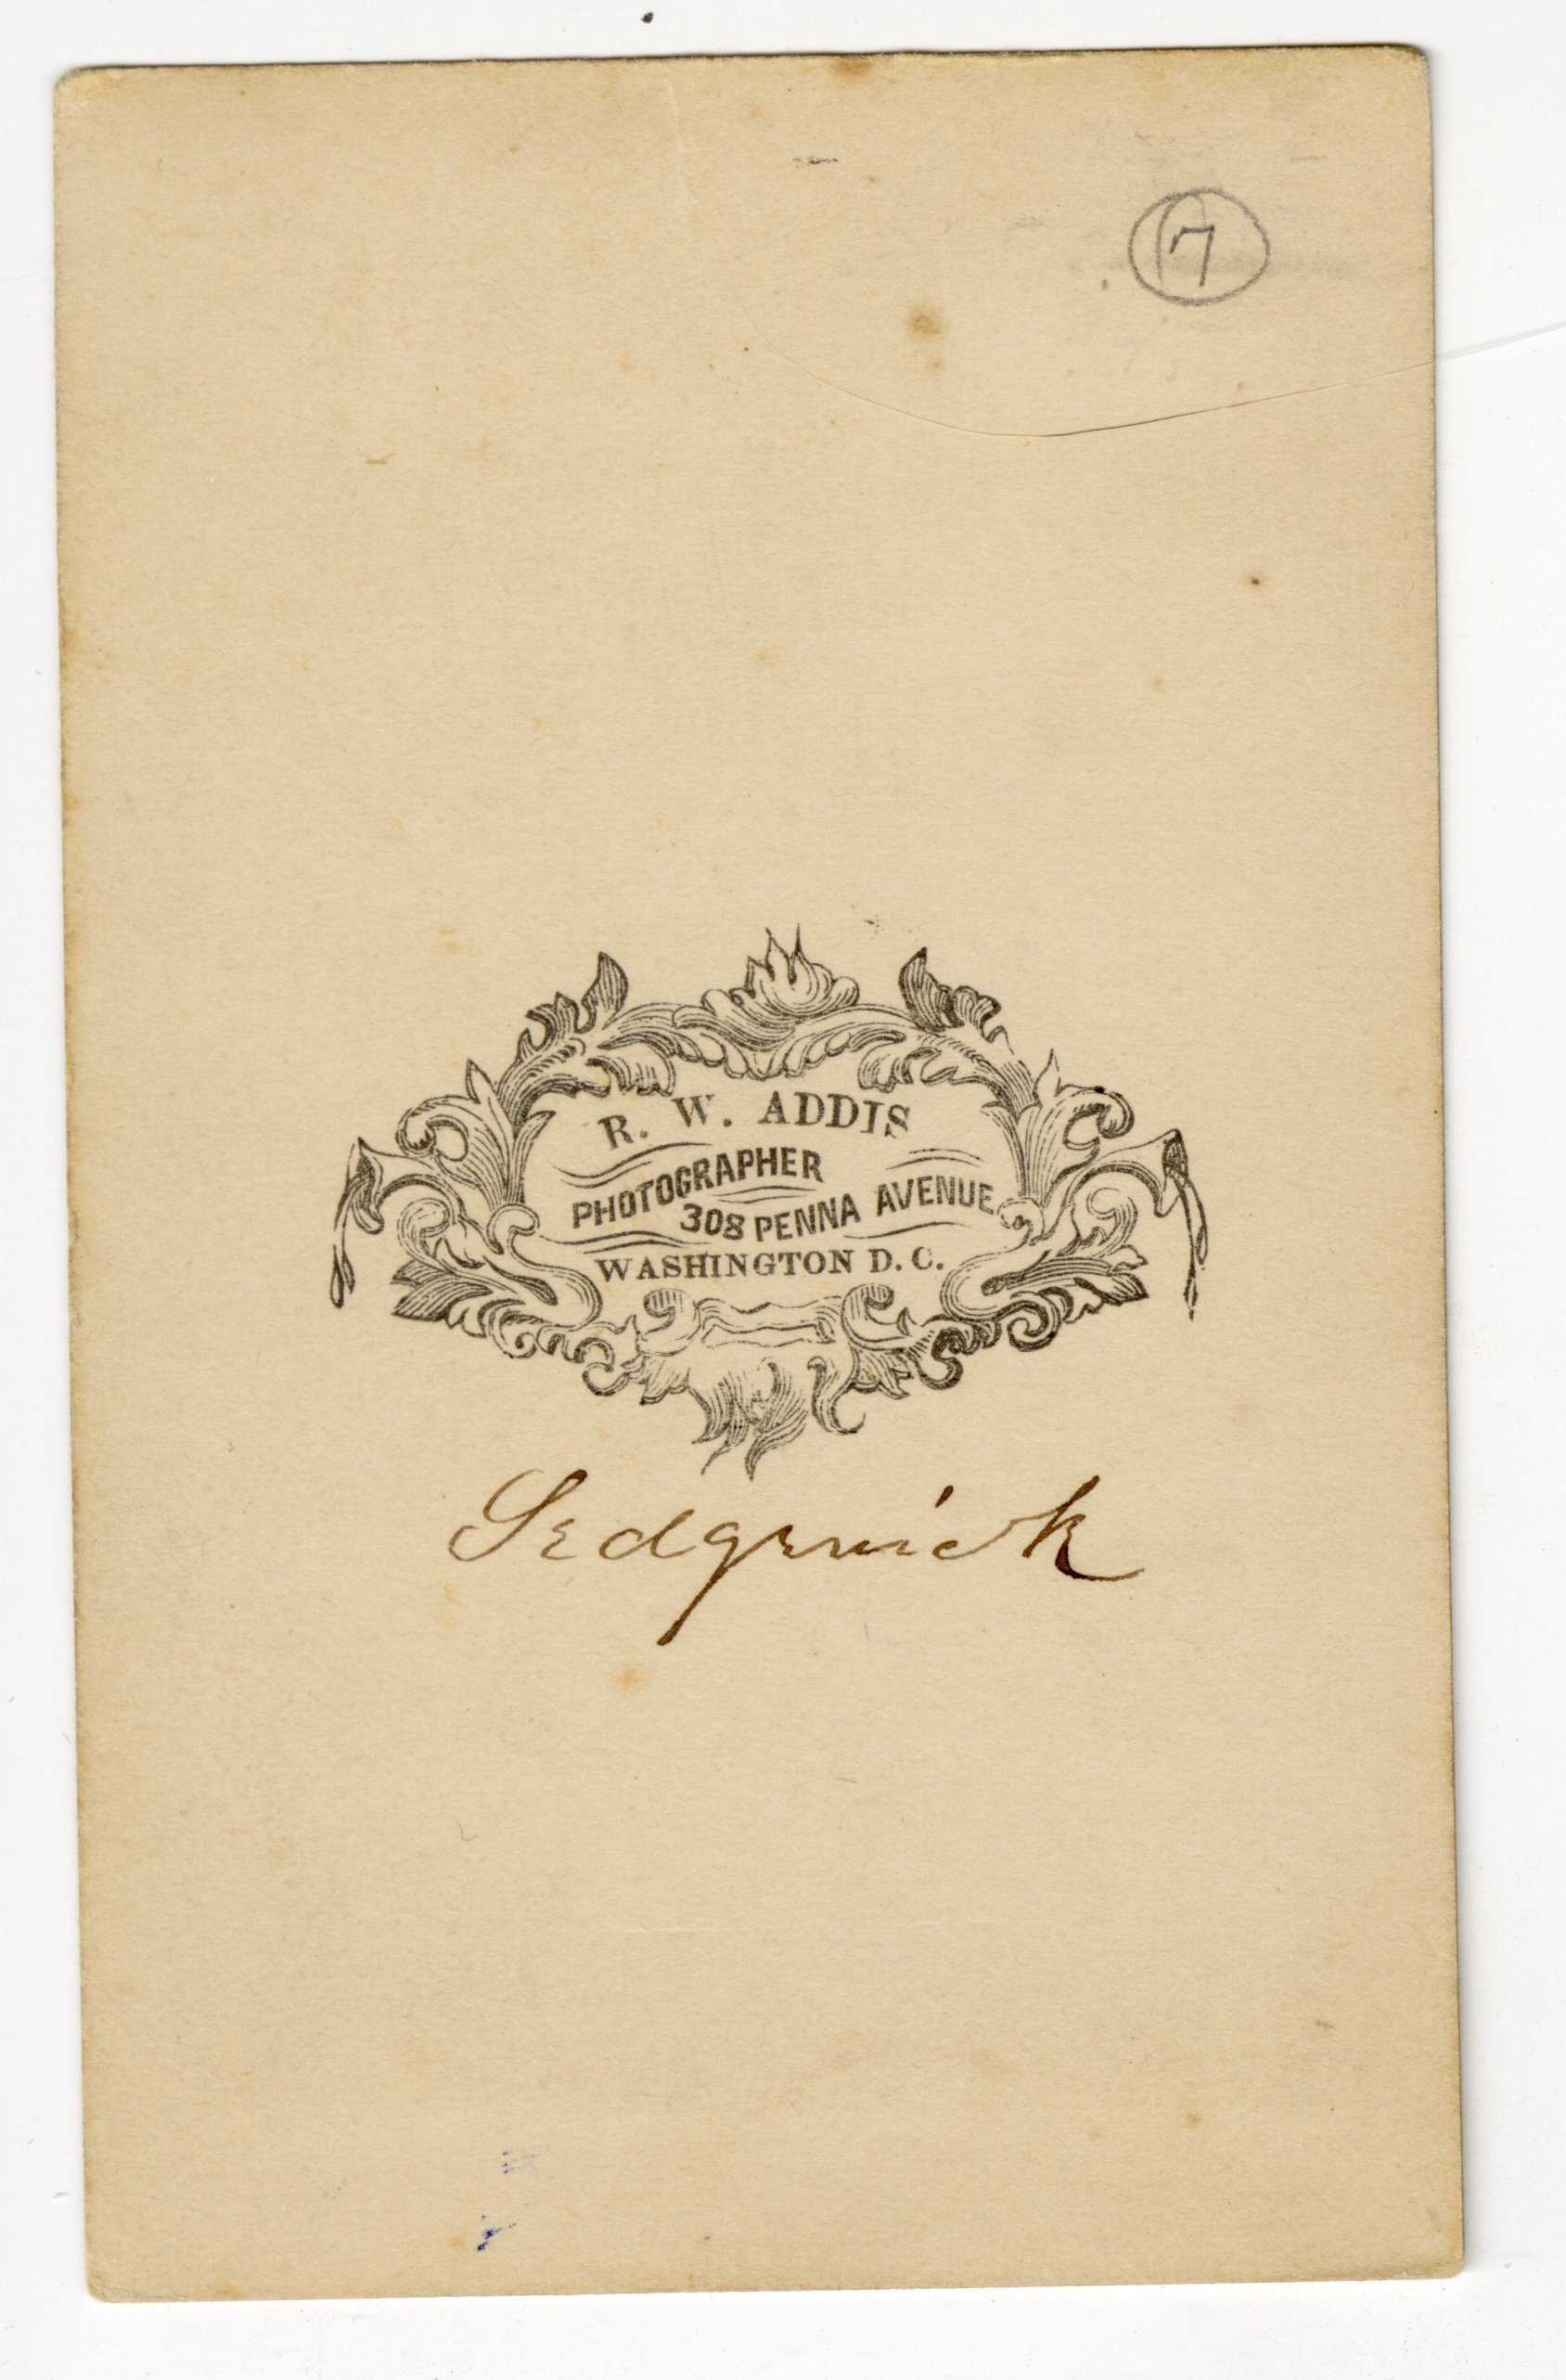 7
R. W. ADDIS
PHOTOGRAPHER
308 PENNA AVENUE
WASHINGTON D. C.
Sedgwick